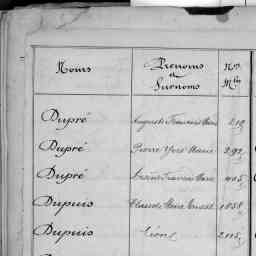 Noms Prénoms et Surnoms Nos Mles
Dupré Auguste François Marie
Dupré Pierre Yves Marie
Dupré François Marie
Dupuis Claude Marie Ernest 1858
Dupuis Léon 2115